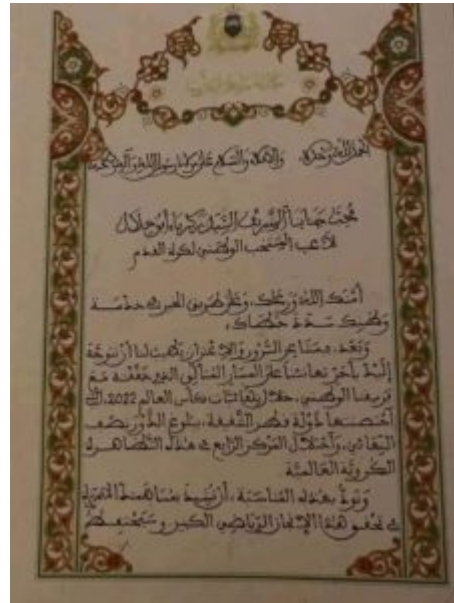 الحمد لله وحده، والصلاة والسلام على مولانا رسول الله وآله وصحبه
محب جنابنا الشريف السيد زكرياء أبو خلال
لاعب المنتخب الوطني لكرة القدم
أمنك الله ورعاك، وعلى طريق الخير في خدمة
وطنك سدد خطاك،
وبعد، فمن السرور والاعتزاز
إليك بأحر تهانئنا على المسار المثالي الذي حققته مع
فريقنا الوطني، خلال نهائيات كأس العالم 2022، التي
احتضنتها دولة قطر الشقيقة، ببلوغ الدور نصف
النهائي، واحتلال المركز الرابع في هذه التظاهرة
الكروية العالمية
ونود بهذه المناسبة، أن نشيد بمساهمتك
في تحقيق هذا الإنجاز الرياضي الكبير